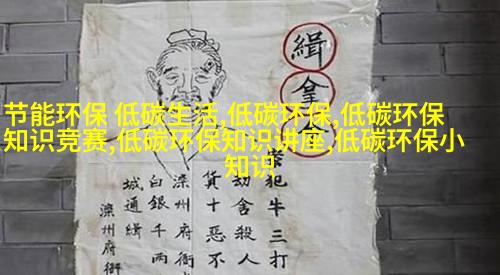 节能环保 低碳生活,低碳环保,低碳环保
知识竞赛,低碳环保知识讲座,低碳环保小
知识
緝拿
犯牛三打
劫舍殺人
貨十惡不
滦州府衙
白銀千两
城通緝
滦州府衙